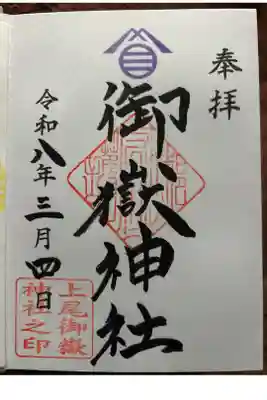 奉拝
御嶽神社
令和八年三月四日
上尾御嶽
神社之印